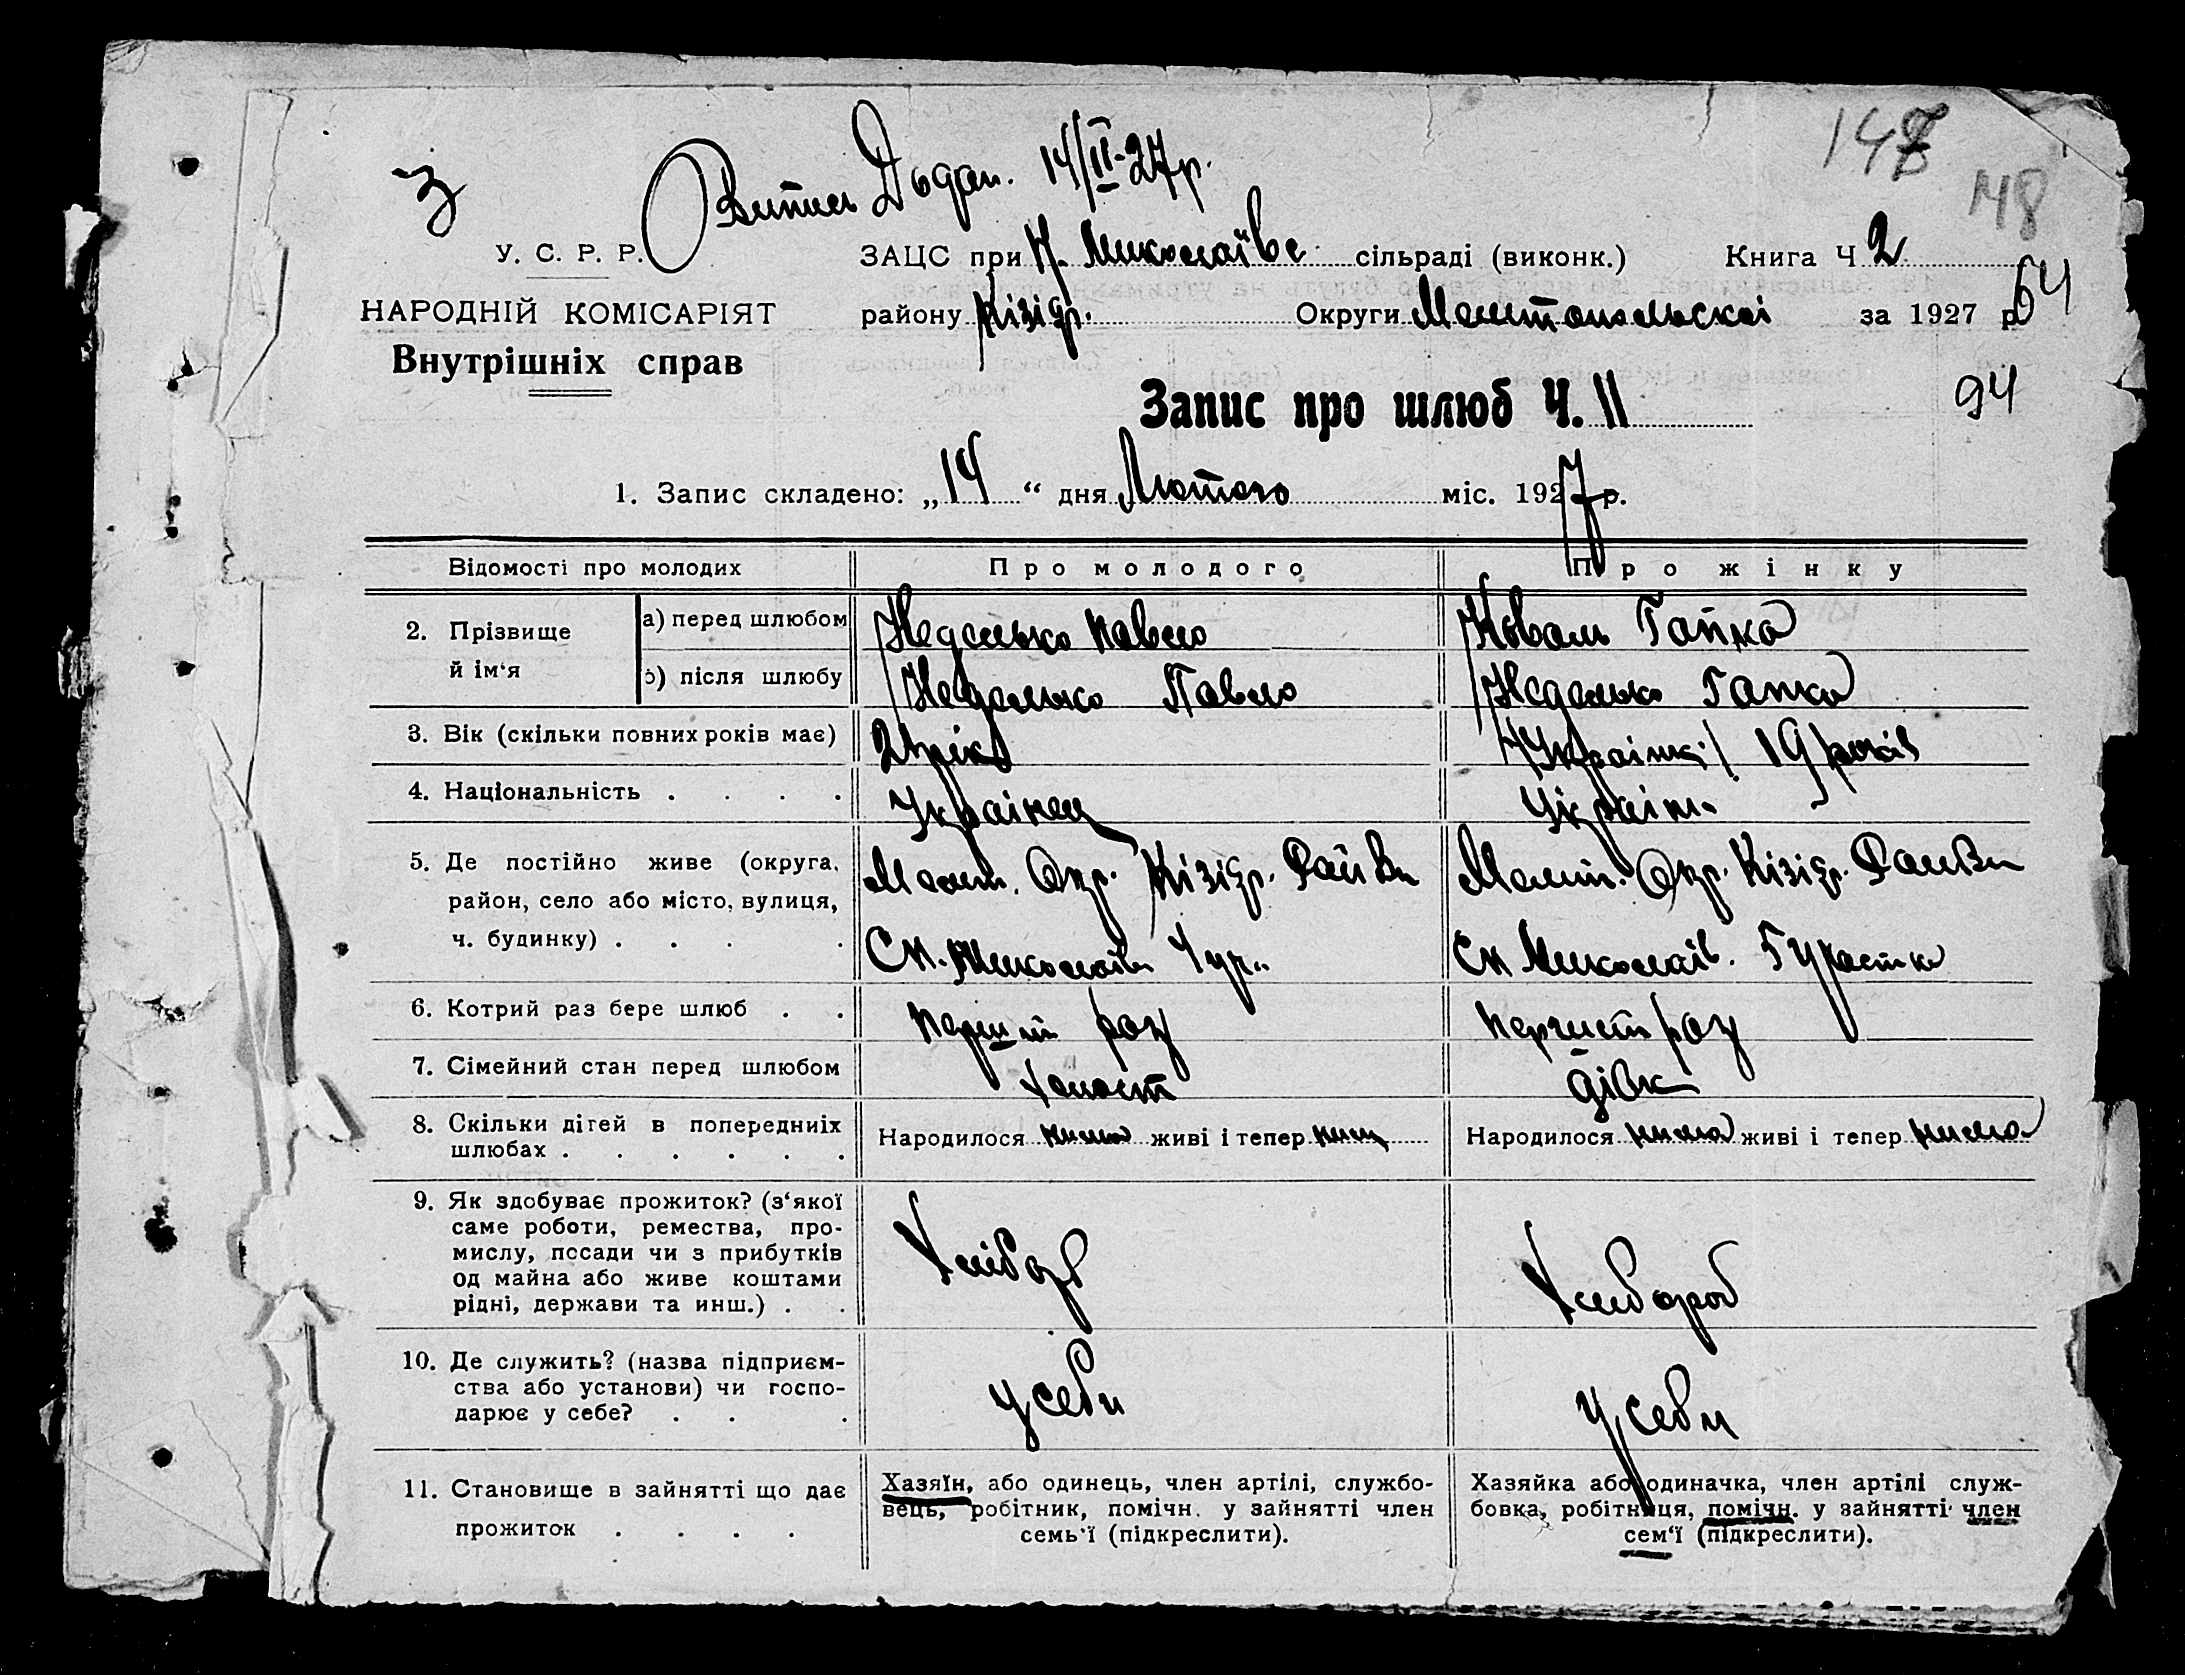 147
148
З
Випись Видан. 14/II-27р.
У. С. Р. Р.
ЗАЦС при Н. Миколаївс сільраді (виконк.) Книга Ч 2
64
НАРОДНІЙ КОМІСАРІЯТ
району Кізідр. Округи Мелітопольскоі за 1927 р
Внутрішніх справ
94
Запис про шлюб Ч. 11
1. Запис складено: „14“ дня Лютого міс. 1927 р.
Відомості про молодих Про молодого Про жінку
2. Прізвище й ім‘я
а) перед шлюбом Неделько Павло Коваль Гапка
б) після шлюбу Неделько Павло Неделько Гапка
3. Вік (скільки повних років має) 21 рік /Українк/ 19 років
4. Національність . . . . Українец Українк
5. Де постійно живе (округа, Меліт. Окр. Кізідр. Району Меліт. Окр. Кізідр. Району
район, село або місто, вулиця,
ч. будинку) . . . . С Н. Миколаїв С Н Миколаїв.
6. Котрий раз бере шлюб . . перший раз перший раз
7. Сімейний стан перед шлюбом холост дівк
8. Скільки дітей в попередниіх
шлюбах . . . . . . Народилося нима живі і тепер ним Народилося нима живі і тепер нима
9. Як здобуває прожиток? (з‘якої
саме роботи, ремества, про-
мислу, посади чи з прибутків
од майна або живе коштами
рідні, держави та инш.) . .
Хліборб Хлібороб
10. Де служить? (назва підприєм-
ства або установи) чи госпо-
дарює у себе? . . .
у себи у себи
11. Становище в зайнятті що дає
прожиток . . . .
Хазяїн, або одинець, член артілі, службо-
вець, робітник, помічн. у зайнятті член
семь‘ї (підкреслити).
Хазяйка або одиначка, член артілі служ-
бовка, робітниця, помічн. у зайнятті член
сем‘ї (підкреслити).